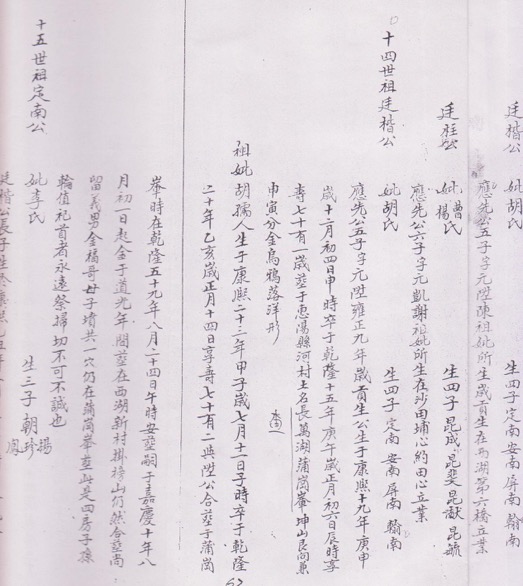 廷楷公 妣胡氏 生四子 定南 安南 屏南 翰南
應先公五子字元陞陳祖妣所生歲貢生在西湖第六橋立業
廷柱公 妣曹氏 楊氏 生四子 昆成 昆斐 昆猷 昆毓
應先公六子字元凱謝祖妣所生在沙田埔心約田心立業
十四世祖廷楷公 妣胡氏 生四子 定南 安南 屏南 翰南
應先公五子字元陞雍正九年歲貢生公生于康熙十九年庚申
歲十二月初四日申時卒于乾隆十五年庚午歲正月初六日辰時享
壽七十有一歲塟于惠陽縣河村土名長萬湖蒲崗峯坤山艮向兼
申寅分金烏鴉落洋形
祖妣胡孺人生于康熙二十三年甲子歲七月十一日子時卒于乾隆
二十年乙亥歲正月十四日享壽七十有二與陞公合塟于蒲崗
峯時在乾隆五十九年八月二十四日午時安塟嗣于嘉慶十年八
月初一日起金于道光年間塟在西湖新村掛榜山仍然合塟尚
留義男金福哥母子墳共一穴仍在蒲崗峯塟此是四房子孫
輪值祀首者永遠祭掃切不可不誠也
十五世祖定南公 妣李氏 生三子 朝珍 揚
廷楷公長子生于康熙